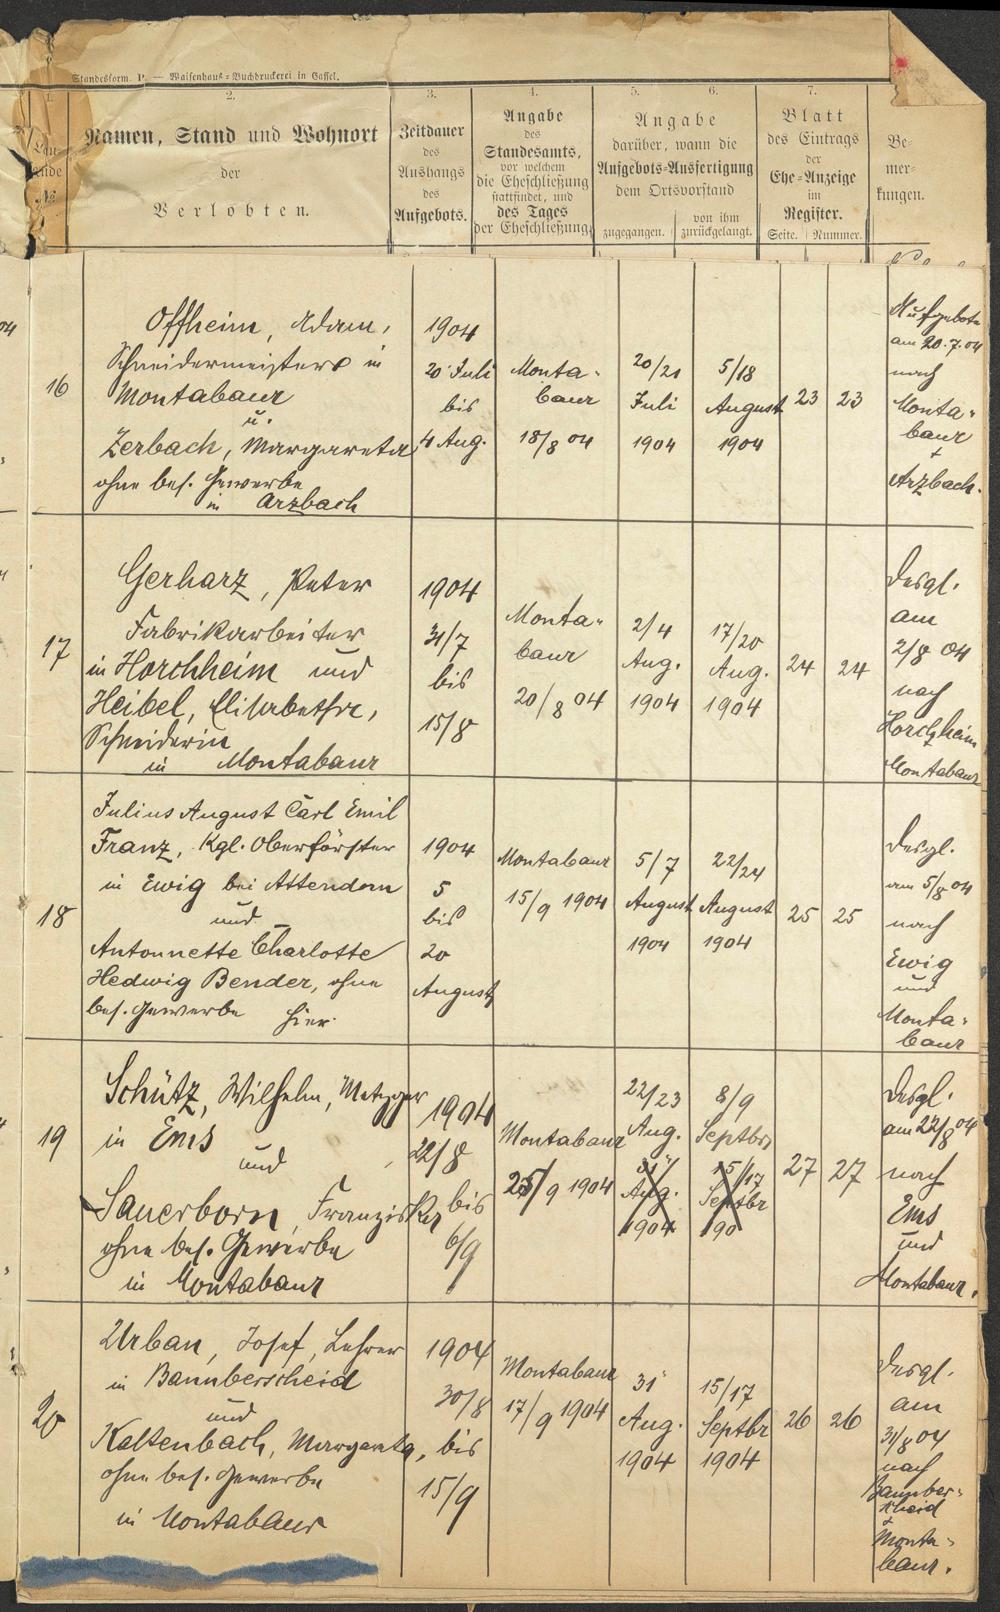 Standesform. P. — Waisenhaus-Buchdruckerei in Cassel.
1.
Lau-
fende
№
2.
Namen, Stand und Wohnort
der
Verlobten.
3.
Zeitdauer
des
Aushangs
des
Aufgebots.
4.
Angabe
des
Standesamts,
vor welchem
die Eheschließung
stattfindet, und
des Tages
der Eheschließung.
5. 6.
Angabe
darüber, wann die
Aufgebots-Ausfertigung
dem Ortsvorstand
zugegangen.
von ihm
zurückgelangt.
7.
Blatt
des Eintrags
der
Ehe-Anzeige
im
Register.
Seite. Nummer.
Be-
mer-
kungen.
16
Offheim, Adam,
Schneidermeister in
Montabaur
u.
Zerbach, Margareta
ohne bes. Gewerbe
in Arzbach
1904
20 Juli
bis
4 Aug.
Monta-
baur
18/8 04
20/21
Juli
1904
5/18
August
1904
23
23
Aufgebot
am 20.7.04
nach
Monta-
baur
+
Arzbach.
17
Gerharz, Peter
Fabrikarbeiter
in Horchheim und
Heibel, Elisabetha,
Schneiderin
in Montabaur
1904
31/7
bis
15/8
Monta-
baur
20/8 04
2/4
Aug.
1904
17/20
Aug.
1904
24
24
desgl.
am
2/8 04
nach
Horchheim
Montabaur
18
Julius August Carl Emil
Franz, Kgl. Oberförster
in Ewig bei Attendorn
und
Antonnette Charlotte
Hedwig Bender, ohne
bes. Gewerbe hier
1904
5
bis
20
August
Montabaur
15/9 1904
5/7
August
1904
22/24
August
1904
25
25
desgl.
am 5/8 04
nach
Ewig
und
Monta-
baur
19
Schütz, Wilhelm, Metzger
in Ems
und
Sauerborn, Franziska
ohne bes. Gewerbe
in Montabaur
1904
22/8
bis
6/9
Montabaur
25/9 1904
22/23
Aug.
31
Aug.
1904
8/9
Septbr
15/17
Septbr
190
27
27
desgl.
am 22/8 04
nach
Ems
und
Montabaur.
20
Urban, Josef, Lehrer
in Bannberscheid
und
Kaltenbach, Margareta,
ohne bes. Gewerbe
in Montabaur
1904
30/8
bis
15/9
Montabaur
17/9 1904
31
Aug.
1904
15/17
Septbr
1904
26
26
desgl.
am
31/8 04
nach
Bannber-
scheid
+
Monta-
baur.